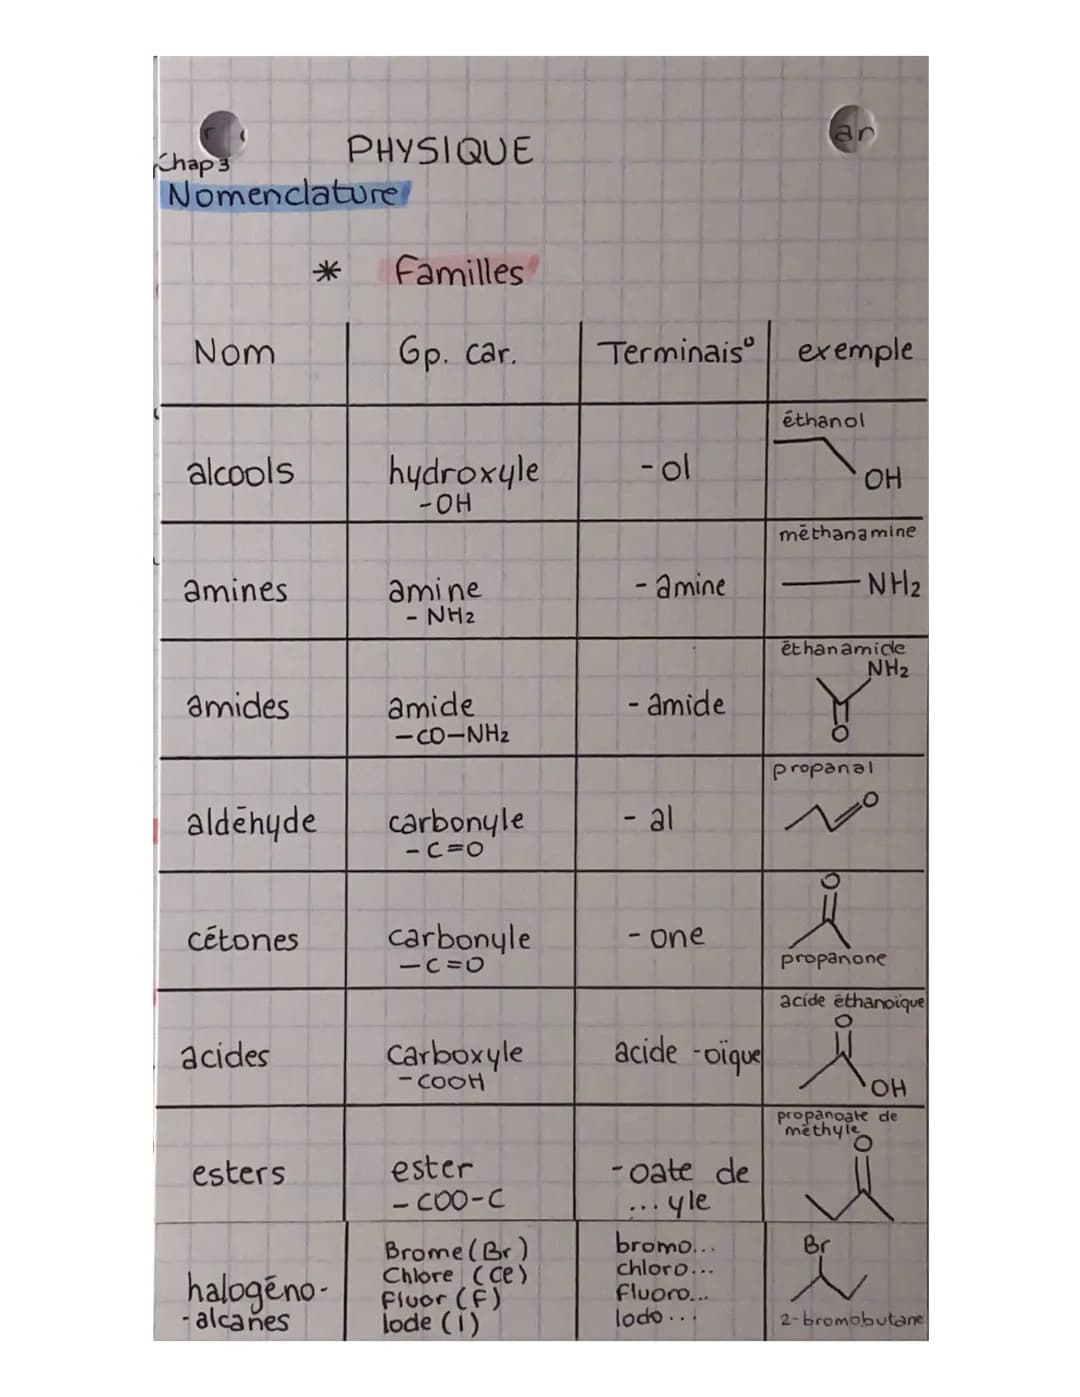 r
ar
PHYSIQUE
Chap 3
Nomenclature
* Familles
Nom Gp. car. Terminais° exemple
éthanol
alcools hydroxyle -ol OH
-OH
méthanamine
amines amine -amine NH2
- NH2
éthanamide
NH2
amides amide -amide
-CO-NH2 O
propanal
aldéhyde carbonyle - al O
-C=O
O
cétones carbonyle - one
-C=O propanone
acide éthanoïque
O
acides carboxyle acide -oïque
-COOH OH
propanoate de
méthyle
O
esters ester -oate de
- COO-C ...yle
Brome (Br) bromo... Br
Chlore (Cl) chloro...
halogéno- Fluor (F) Fluoro...
-alcanes Iode (I) Iodo... 2-bromobutane